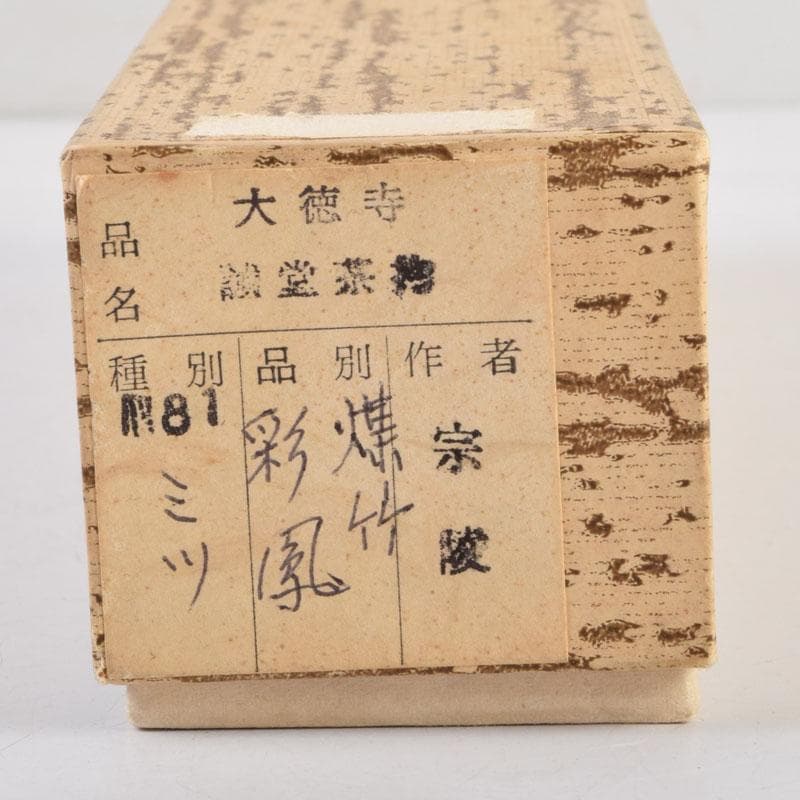 品名
大徳寺
誠堂茶杓
種別
品別
作者
181
ミツ
煤竹
彩鳳
宗陂